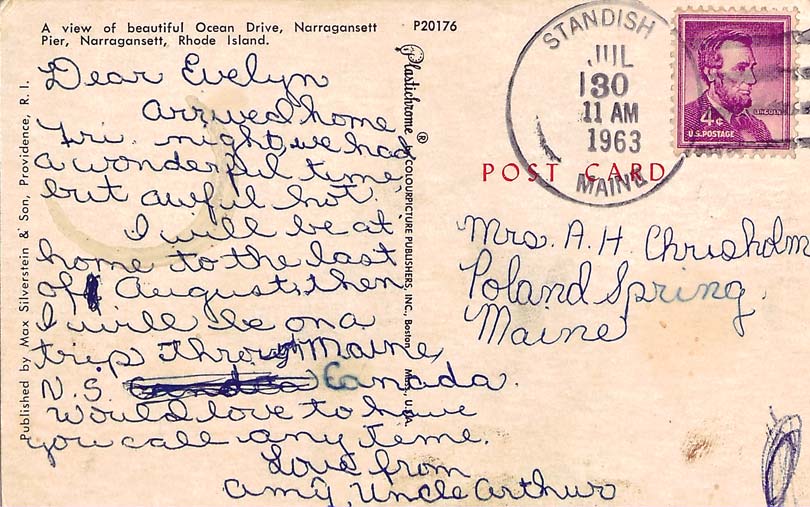 A view of beautiful Ocean Drive, Narragansett
Pier, Narragansett, Rhode Island.
P20176
Published by Max Silverstein & Son, Providence, R. I.
Dear Evelyn
arrived home
Fri. night we had
a wonderful time
but awful hot.
I will be at
home to the last
of August, then
I will be on a
trip through Maine,
N.S. Canada.
would love to have
you call any time.
Love from
Amy, Uncle Arthur
Plastichrome ® by COLOURPICTURE PUBLISHERS, INC., Boston, Mass., U.S.A.
STANDISH
JUL
30
11 AM
1963
MAINE
LINCOLN
4¢
U.S. POSTAGE
POST CARD
Mrs. A. H. Chrisholm
Poland Spring,
Maine